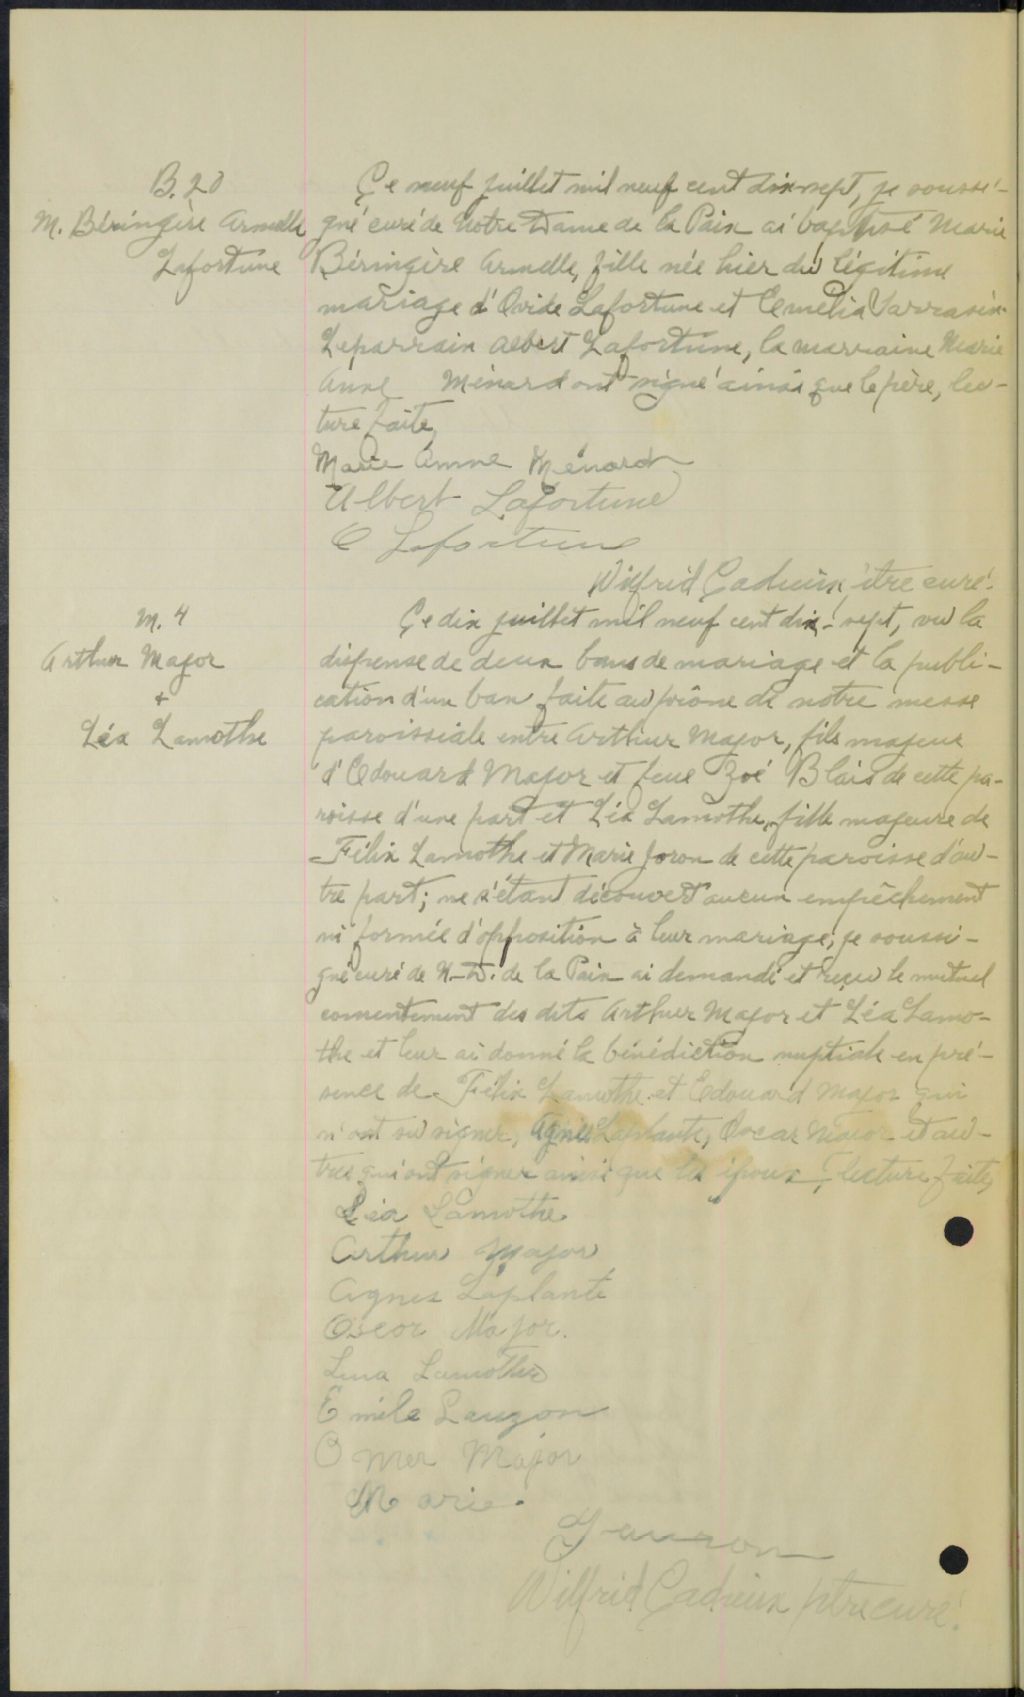 B. 20
M. Béringère Armelle
Lafortune
Ce neuf juillet mil neuf cent dix-sept, je soussi-
gné curé de Notre Dame de la Paix ai baptisé Marie
Béringère Armelle, fille née hier du légitime
mariage d'Ovide Lafortune et Emélia Sarrasin.
Le parrain Albert Lafortune, la marraine Marie
Anne Ménard ont signé ainsi que le père, lec-
ture faite,
Marie Anne Ménard
Albert Lafortune
O Lafortune
Wilfrid Cadieux, ptre curé.
M. 4
Arthur Major
+
Léa Lamothe
Ce dix juillet mil neuf cent dix-sept, vu la
dispense de deux bans de mariage et la publi-
cation d'un ban faite au prône de notre messe
paroissiale entre Arthur Major, fils majeur
d'Edouard Major et feue Zoé Blais de cette pa-
roisse d'une part et Léa Lamothe, fille majeure de
Félix Lamothe et Marie Joron de cette paroisse d'au-
tre part; ne s'étant découvert aucun empêchement
ni formée d'opposition à leur mariage, je soussi-
gné curé de N.-D. de la Paix ai demandé et reçu le mutuel
consentement des dits Arthur Major et Léa Lamo-
the et leur ai donné la bénédiction nuptiale en pré-
sence de Félix Lamothe et Edouard Major qui
n'ont su signer, Agnès Laplante, Oscar Major et au-
tres qui ont signer ainsi que les époux, lecture faite,
Léa Lamothe
Arthur Major
Agnes Laplante
Oscor Major.
Lamothe
Emile Lauzon
Omer Major
Marie.
Lauzon
Wilfrid Cadieux ptre curé.